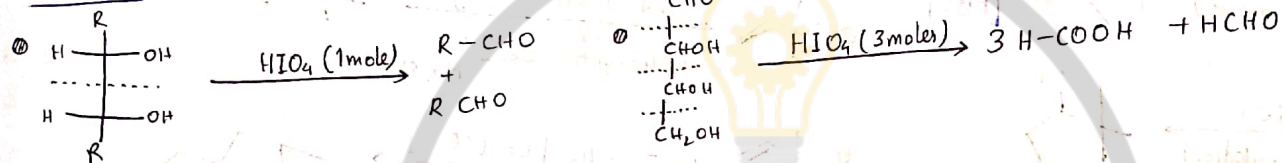 R
H OH
H OH
R
HIO4 (1mole)
R-CHO
+
R CHO
CHO
CHOH
CHOH
CH2OH
HIO4 (3moles)
3 H-COOH + HCHO